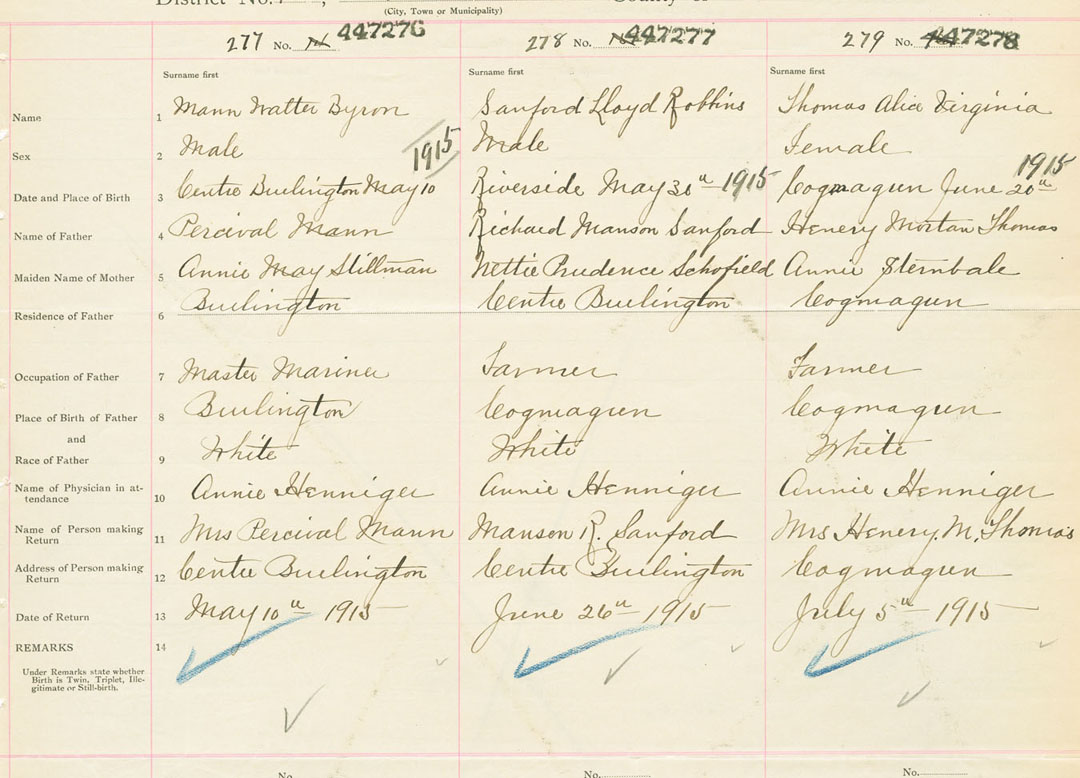 District No.
(City, Town or Municipality)
277 No. 447276
278 No. 447277
279 No. 447278
Surname first Surname first Surname first
Name 1 Mann Walter Byron Sanford Lloyd Robbins Thomas Alice Virginia
Sex 2 Male 1915 Male Female 1915
Date and Place of Birth 3 Centre Burlington May 10 Riverside May 30th 1915 Cogmagun June 20th
Name of Father 4 Percival Mann Richard Manson Sanford Henery Mortan Thomas
Maiden Name of Mother 5 Annie May Stillman Nettie Prudence Schofield Annie
Residence of Father 6 Burlington Centre Burlington Cogmagun
Occupation of Father 7 Master Mariner Farmer Farmer
Place of Birth of Father 8 Burlington Cogmagun Cogmagun
and
Race of Father 9 White White White
Name of Physician in at-
tendance 10 Annie Henniger Annie Henniger Annie Henniger
Name of Person making
Return 11 Mrs Percival Mann Manson R. Sanford Mrs Henery. M. Thomas
Address of Person making
Return 12 Centre Burlington Centre Burlington Cogmagun
Date of Return 13 May 10th 1915 June 26th 1915 July 5th 1915
REMARKS 14
Under Remarks state whether
Birth is Twin, Triplet, Ille-
gitimate or Still-birth.
No. No. No.